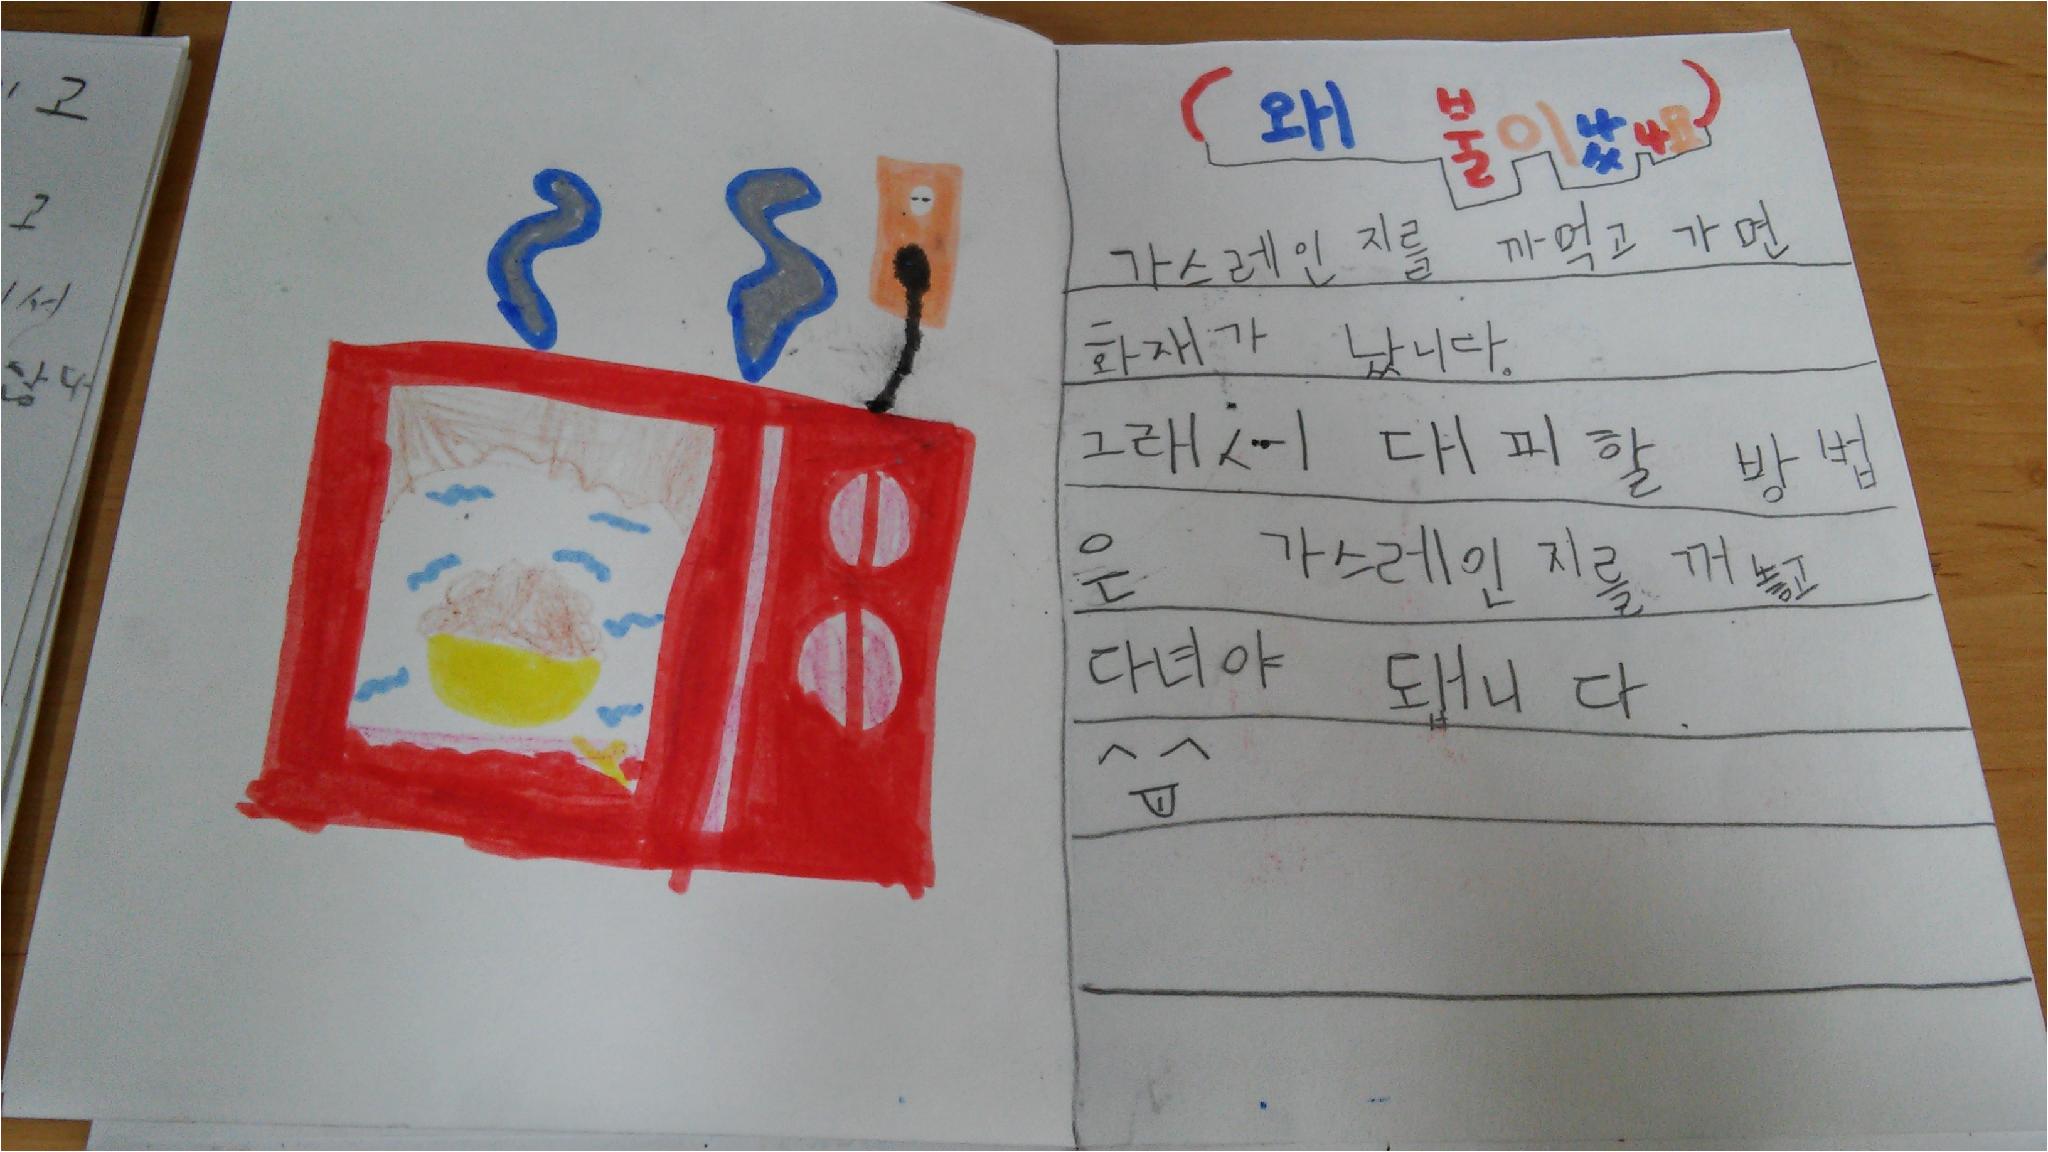 고
고
서
(왜 불이 났 ㅛ)
가스레인지를 까먹고 가면
화재가 났니다.
그래서 대피할 방법
은 가스레인지를 꺼놓고
다녀야 됍니다.
^^